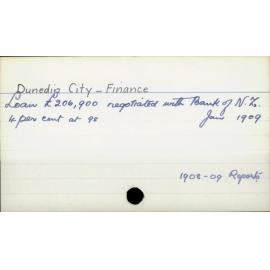 Dunedin City - Finance
Loan £206,900 negotiated with Bank of N.Z.
4 per cent at 98 Jan 1909
1908-09 Reports